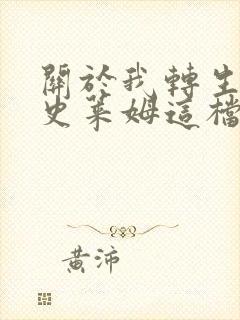 關於我轉生
史萊姆這檔
黃沛